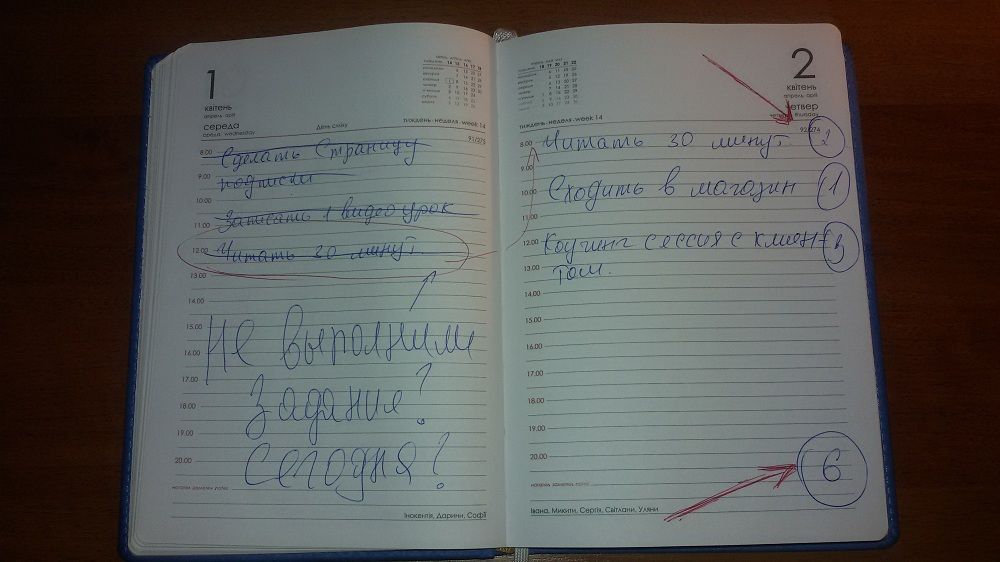 1
квітень
апрель april
середа
среда wednesday
День сміху
тиждень · неделя · week 14
91/275
8.00
Сделать страницу
9.00
подписки
10.00
Записать 1 видео урок
11.00
12.00
Читать 30 минут.
13.00
14.00
15.00
Не выполнили
16.00
17.00
Задания?
18.00
19.00
сегодня?
20.00
нотатки заметки notes
Інокентія, Дарини, Софії
2
квітень
апрель april
четвер
четверг thursday
тиждень · неделя · week 14
92/274
8.00
Читать 30 минут. 2
9.00
10.00
Сходить в магазин 1
11.00
12.00
Коучинг сессия с клиен- 3
13.00
том.
14.00
15.00
16.00
17.00
18.00
19.00
20.00
6
нотатки заметки notes
Івана, Микити, Сергія, Світлани, Уляни